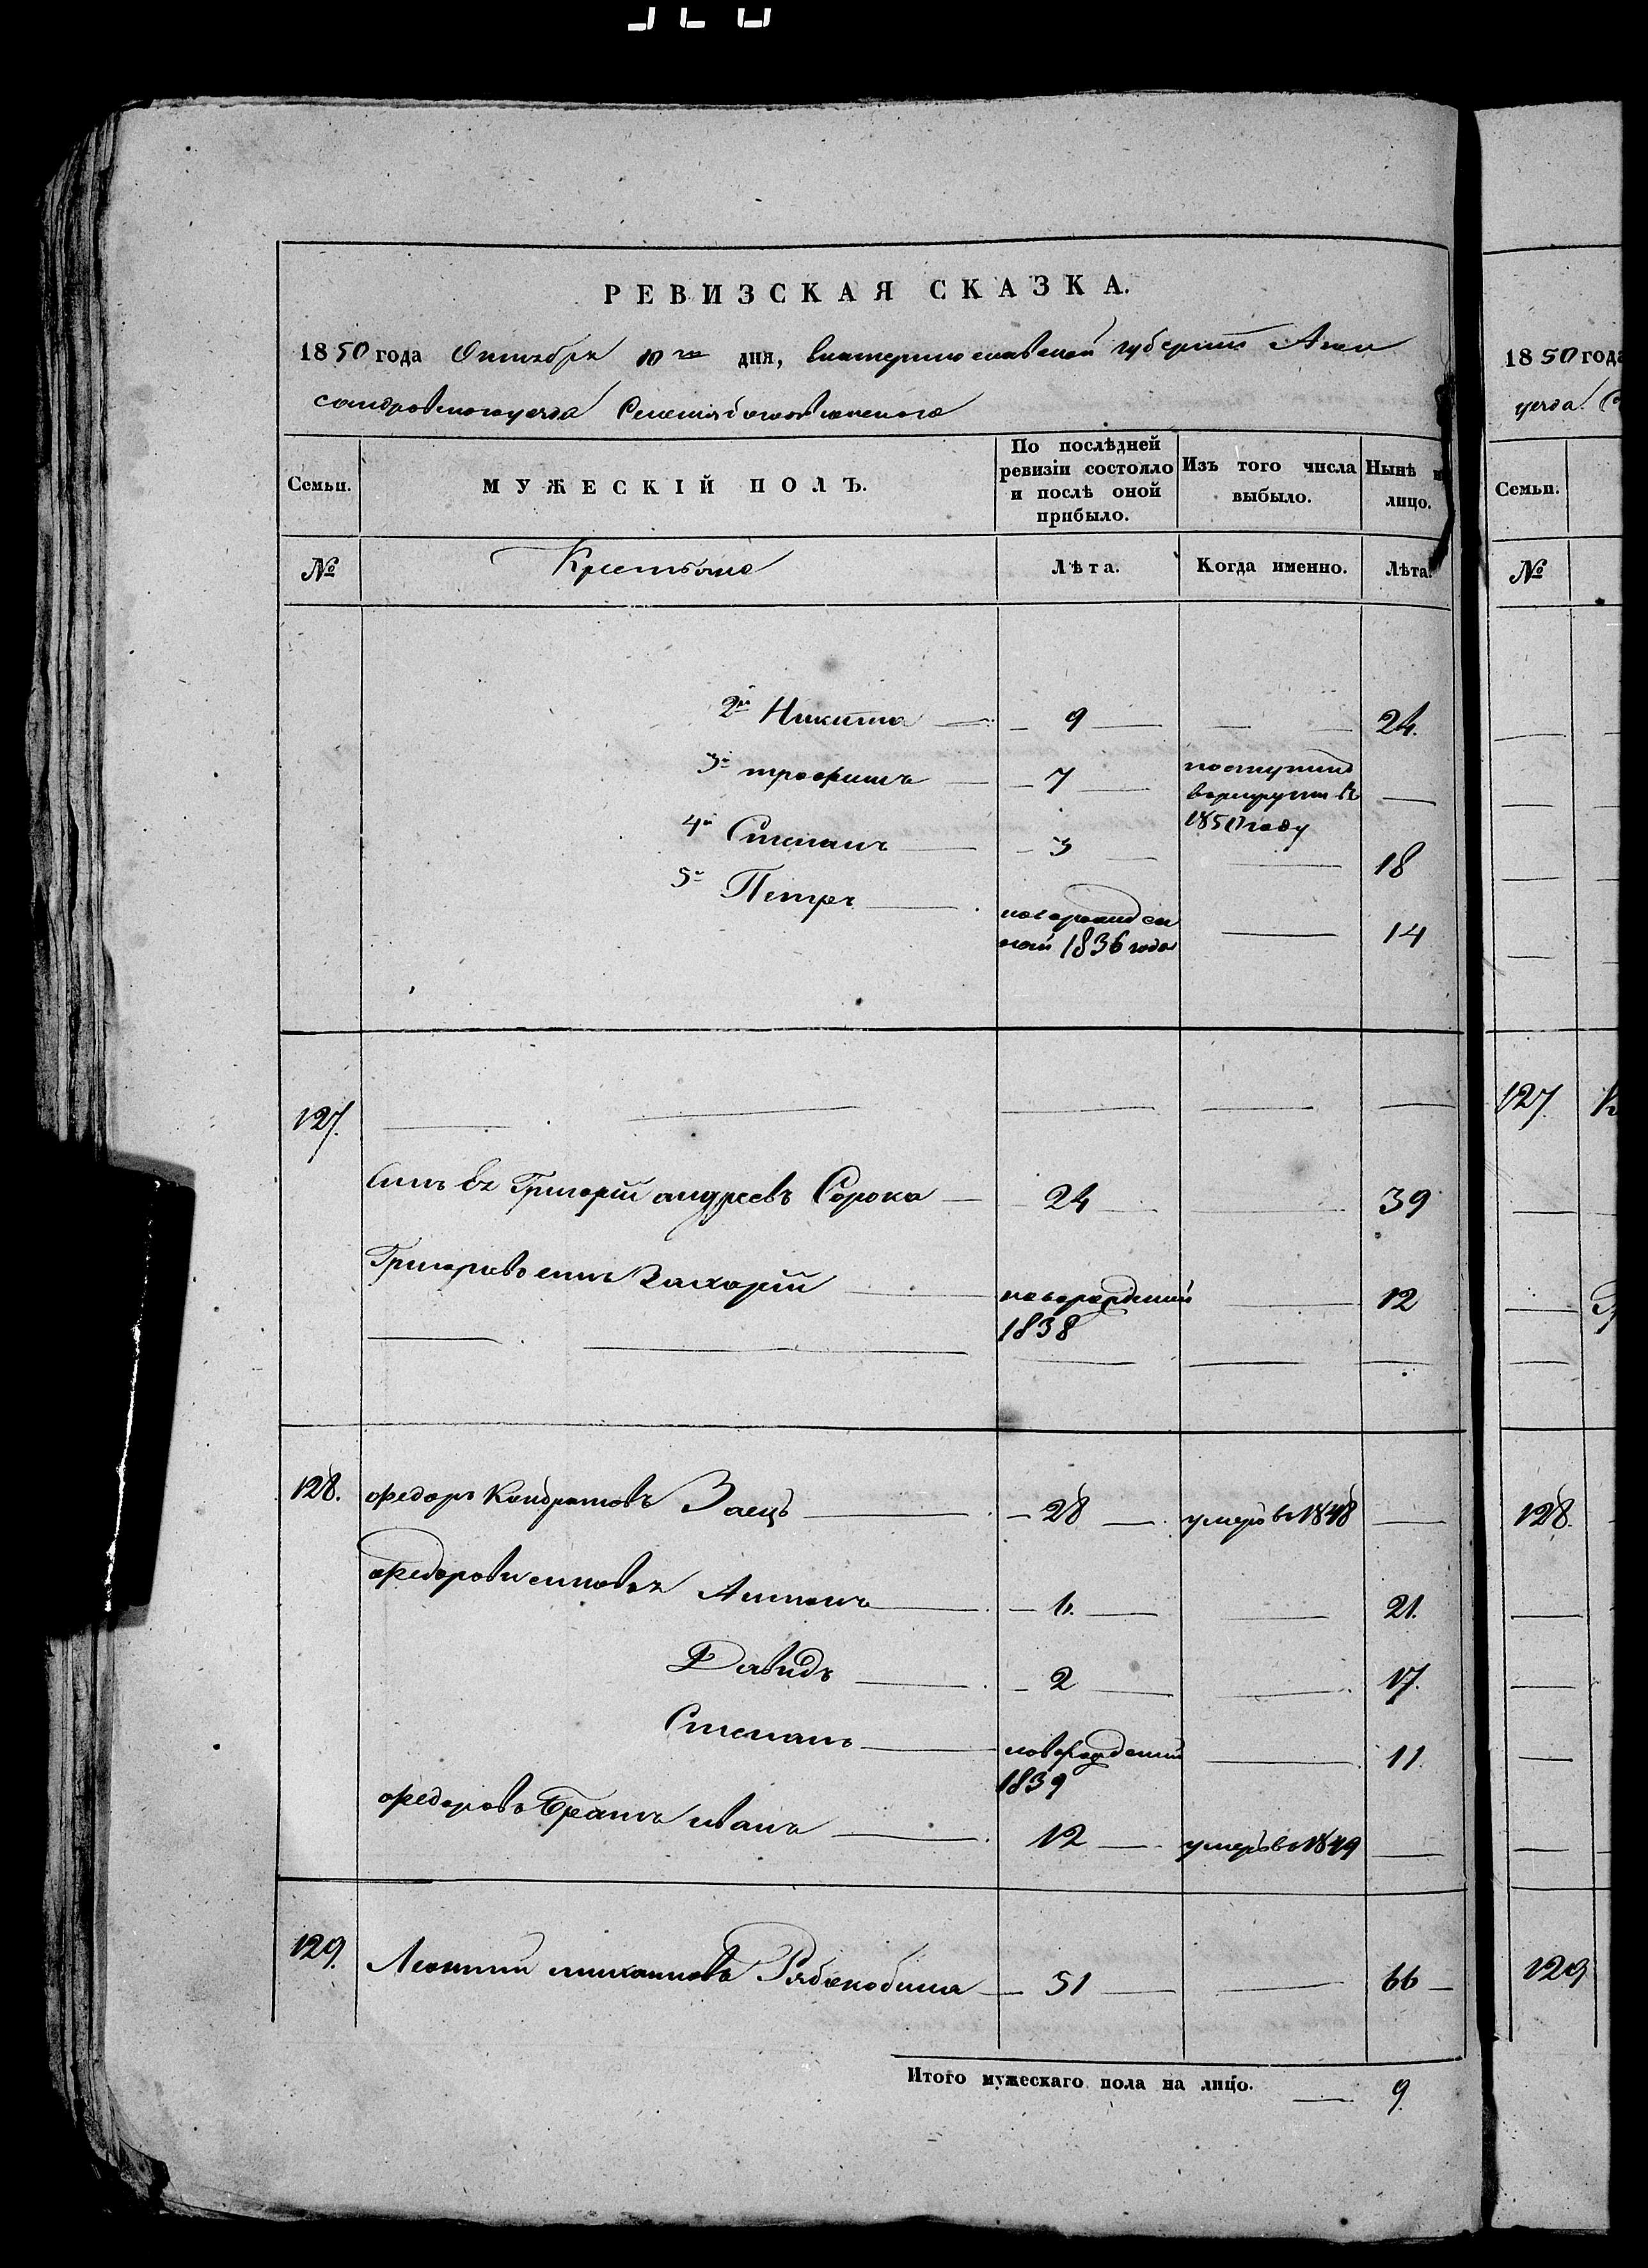 РЕВИЗСКАЯ СКАЗКА.
1850 года Октября 10го дня, Екатеринославской губерніи Алек
сандровского уезда Селенія
Семьи.
МУЖЕСКІЙ ПОЛЪ.
По послѣдней ревизіи состояло и послѣ оной прибыло.
Изъ того числа выбыло.
Нынѣ
лицо.
№
Крестьяне
Лѣта.
Когда именно.
Лѣта.
2й Никита 9 24.
3й трофимъ 7 поступилъ
в рекруты въ
1850 году
4й Степанъ 3 18
5й Петръ новорожден
ный 1836 года 14
127.
Григорій андреевъ Сорока 24 39
Григорьевъ сынъ Захарій новорожденый
1838 12
128. федоръ Кондратовъ Заецъ 28 умеръ в 1848
федоровы сыновья Антонъ 6. 21.
Давидъ 2 17.
Степанъ новорожденый
1839 11.
федоровъ братъ иванъ 12 умеръ в 1849
129. Леонтий михаиловъ Рябокобыла 51 66
Итого мужескаго пола на лицо. 9.
1850 года
уезда
Семьи.
№
127.
128.
129